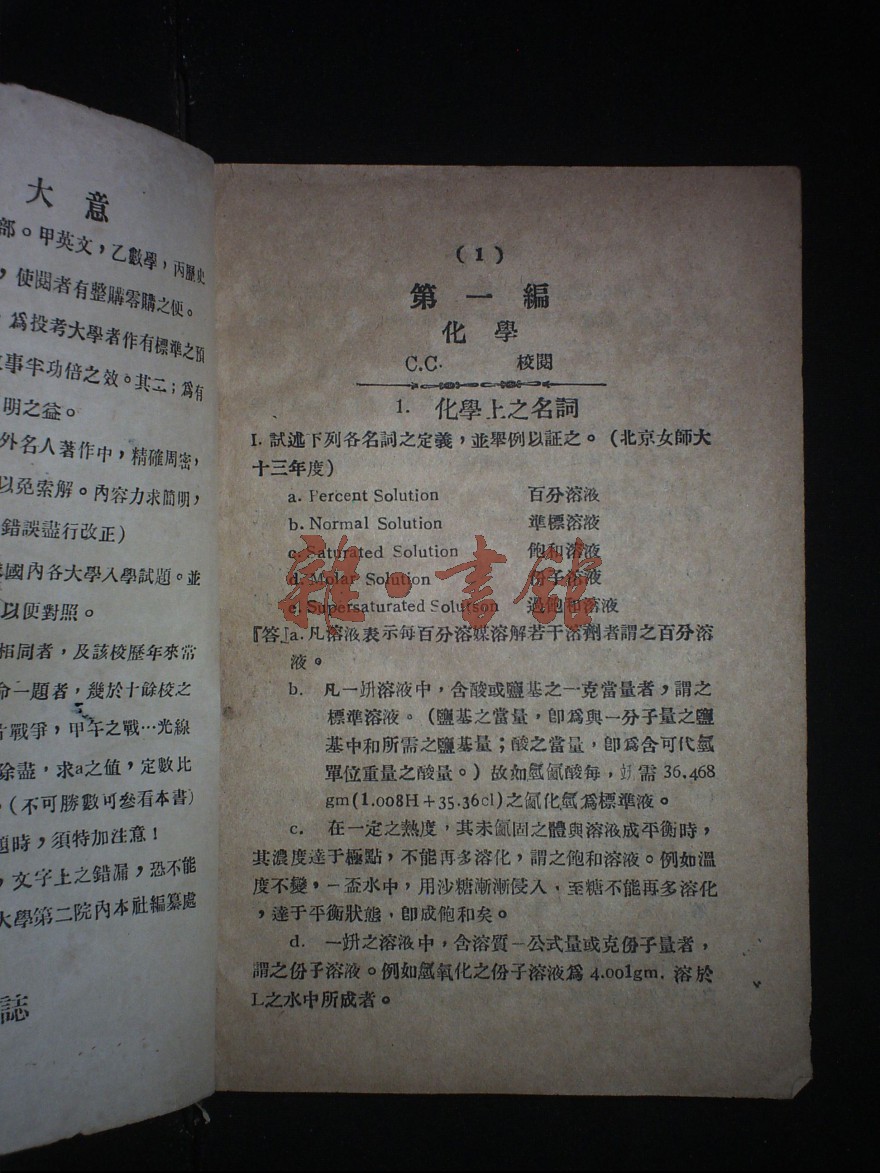 大意
部。甲英文，乙數學，丙歷史
，使閱者有整購零購之便。
，爲投考大學者作有標準之預
事半功倍之效。其二；爲有
明之益。
外名人著作中，精確周密，
以免索解。內容力求簡明，
錯誤盡行改正）
國內各大學入學試題。並
以便對照。
相同者，及該校歷年來常
命一題者，幾於十餘校之
戰爭，甲午之戰…光線
除盡，求a之值，定數比
。（不可勝數可參看本書）
題時，須特加注意！
，文字上之錯漏，恐不能
大學第二院內本社編纂處
誌
（1）
第一編
化學
C.C. 校閱
1. 化學上之名詞
I. 試述下列各名詞之定義，並舉例以証之。（北京女師大
十三年度）
a. Percent Solution 百分溶液
b. Normal Solution 準標溶液
c. Saturated Solution 飽和溶液
d. Molar Solution 份子溶液
e. Supersaturated Solutson 過飽和溶液
『答』a. 凡溶液表示每百分溶媒溶解若干溶劑者謂之百分溶
液。
b. 凡一竔溶液中，含酸或鹽基之一克當量者，謂之
標準溶液。（鹽基之當量，卽爲與一分子量之鹽
基中和所需之鹽基量；酸之當量，卽爲含可代氫
單位重量之酸量。）故如氫氯酸每，竔需36.468
gm(1.008H+35.36cl)之氯化氫爲標準液。
c. 在一定之熱度，其未氯固之體與溶液成平衡時，
其濃度達于極點，不能再多溶化，謂之飽和溶液。例如溫
度不變，一盃水中，用沙糖漸漸侵入，至糖不能再多溶化
，達于平衡狀態，卽成飽和矣。
d. 一竔之溶液中，含溶質一公式量或克份子量者，
謂之份子溶液。例如氫氧化之份子溶液爲4.001gm. 溶於
L之水中所成者。
雜·書館